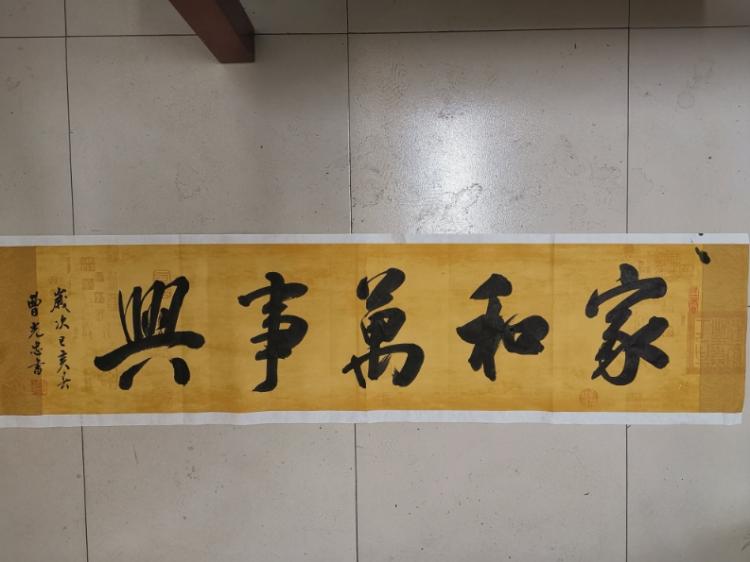 家和萬事興
歲次己亥冬
曹光忠書